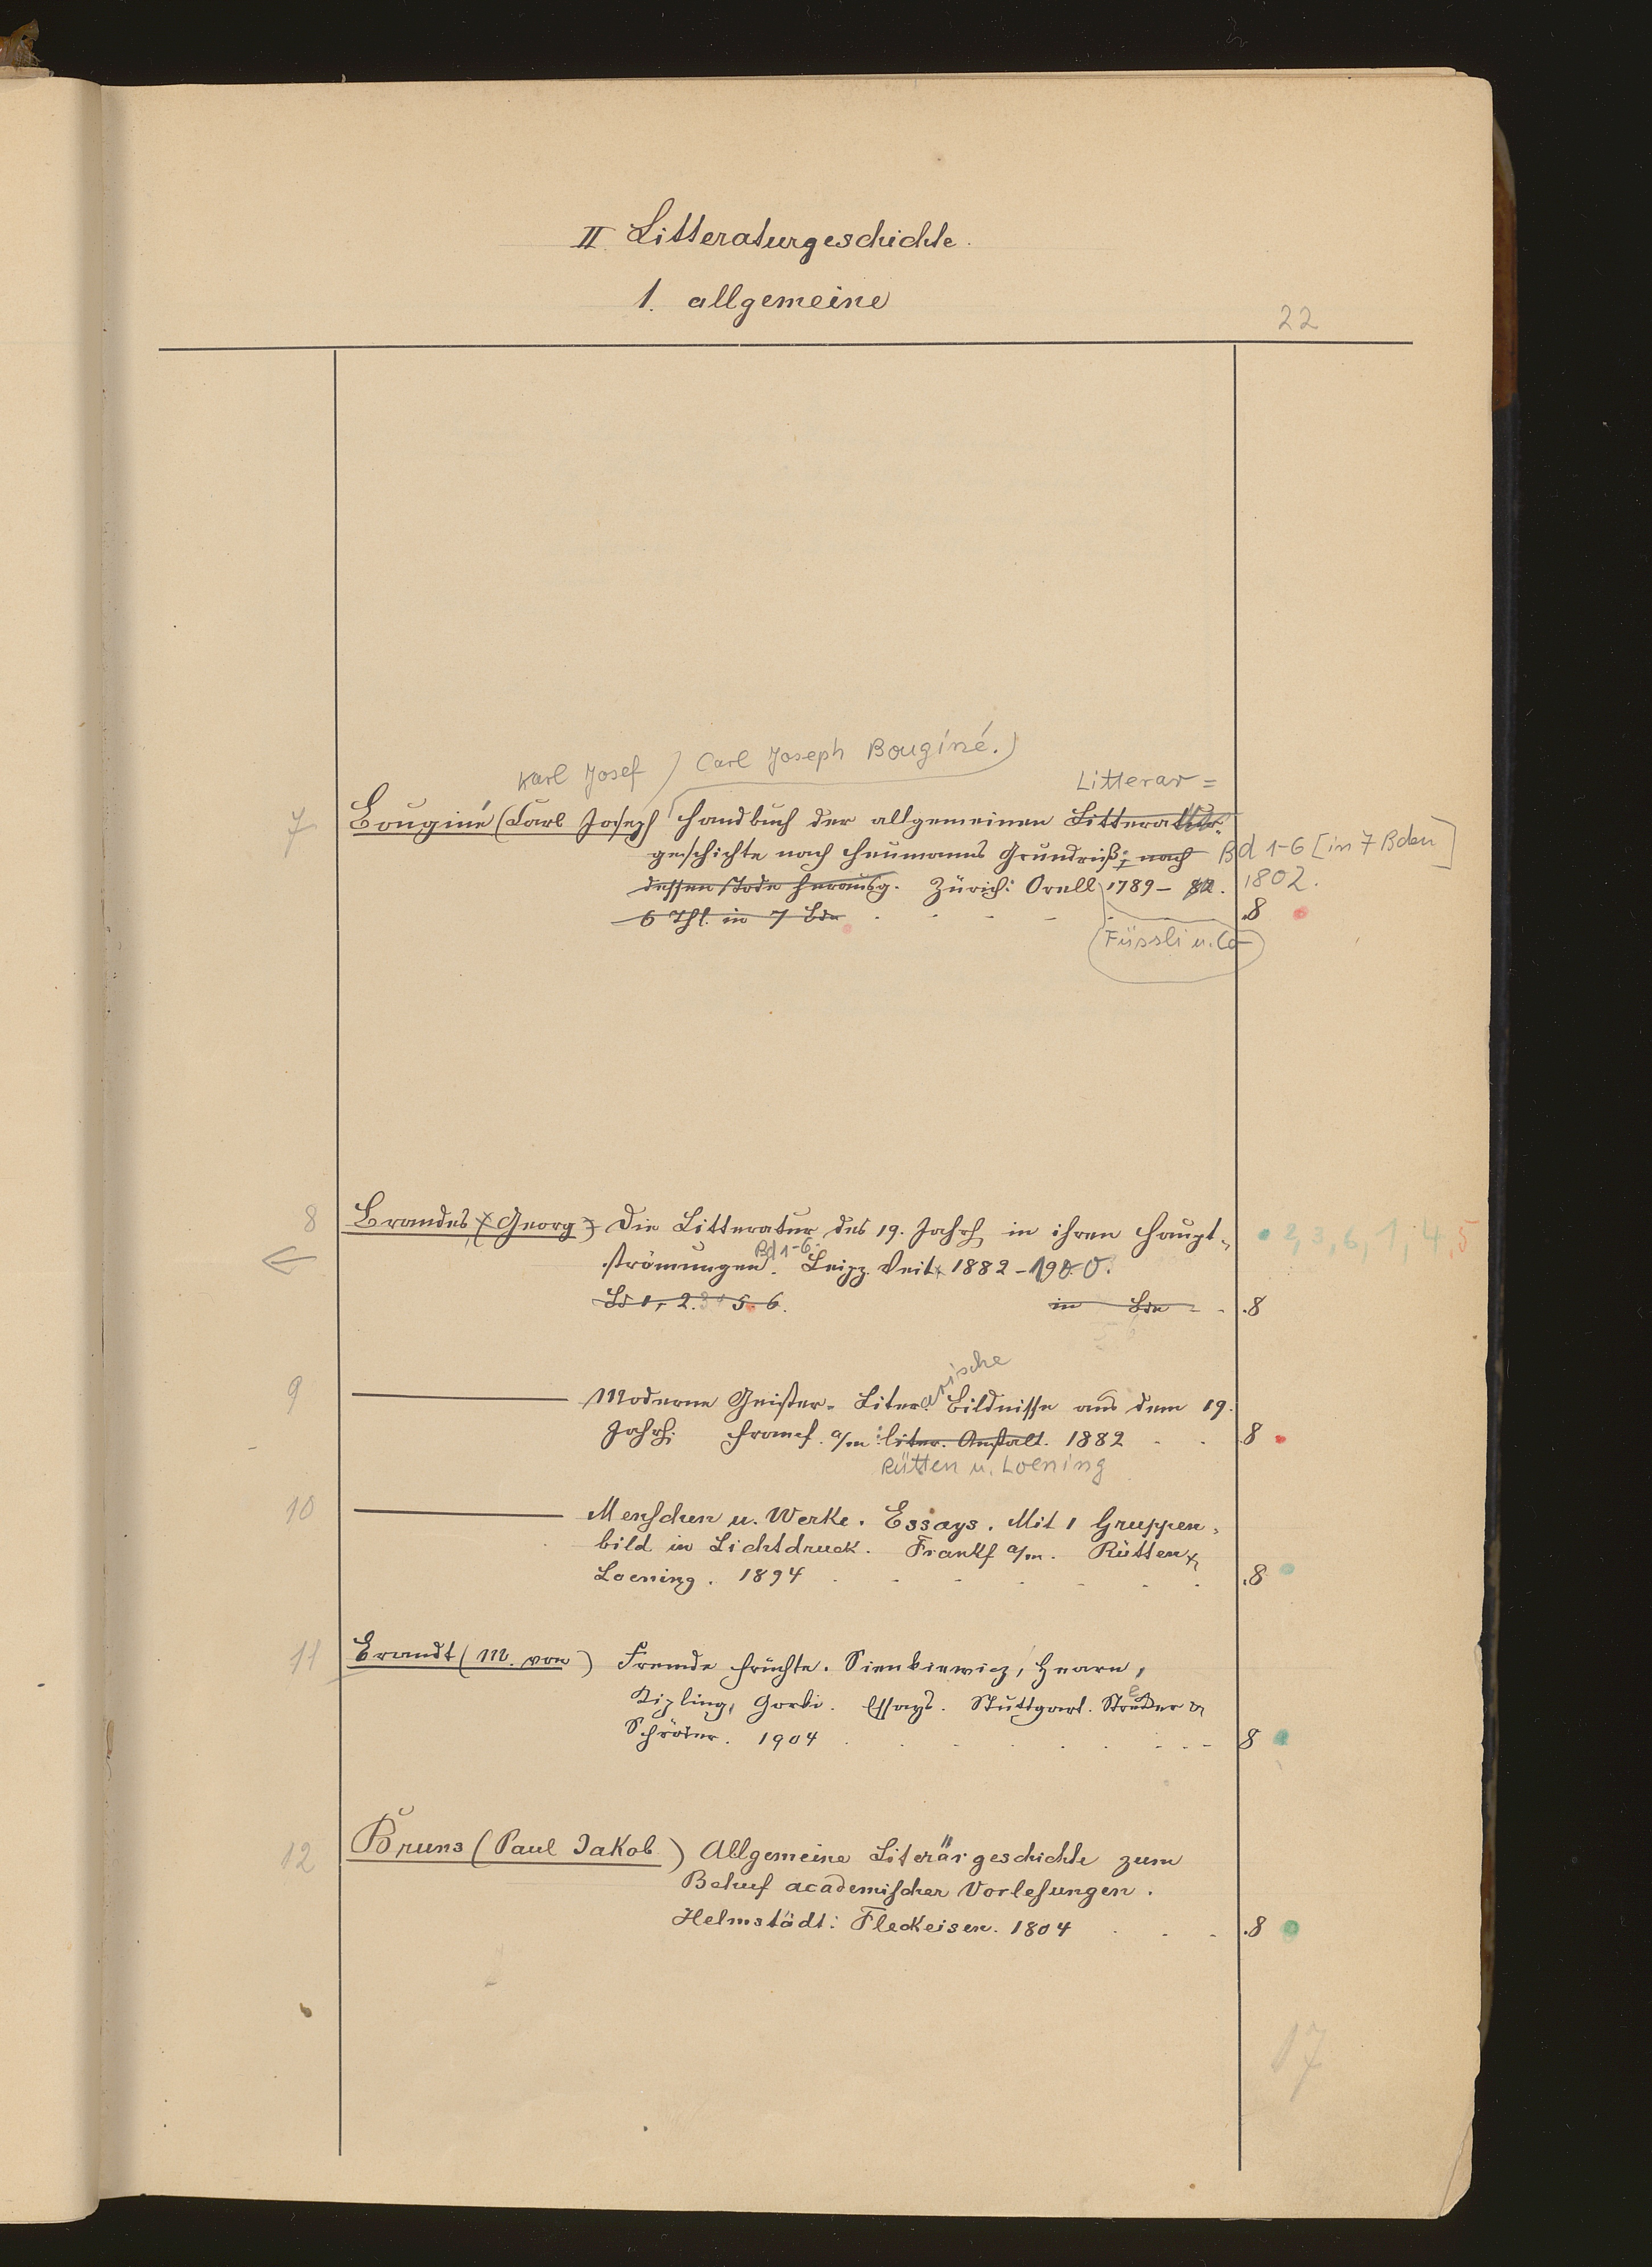 II Litteraturgeschichte.
1. allgemeine
22
Karl Josef / Carl Joseph Bouginé.)
Litterar=
7 Bouginé (Carl Joseph Handbuch der allgemeinen Litteratur-
geschichte nach Heumanns Grundriß; nach Bd 1-6 [in 7 Bden]
dessen Tode herausg. Zürich: Orell 1789- 82. 1802.
6 Thl. in 7 Bdn .8
Füssli u. Co
8 Brandes, (Georg) Die Litteratur des 19. Jahrh. in ihren Haupt- 2, 3, 6, 1, 4, 5
Bd 1-6.
strömungen. Leipz. Veit 1882-1900.
Bd 1, 2. 3 5. 6. in Bdn .8
arische
9 Moderne Geister. Liter. Bildnisse aus dem 19.
Jahrh. Francf. a/m: liter. Anstalt. 1882 8
Rütten u. Loening
10 Menschen u. Werke. Essays. Mit 1 Gruppen-
bild in Lichtdruck. Frankf a/m. Rütten &
Loening. 1894 .8
11 Brandt (M. von) Fremde Früchte. Sienkiewicz, Hearn,
Kipling, Gorki. Essays. Stuttgart. Strecker &
Schröder. 1904 8
12 Bruns (Paul Jakob) Allgemeine Literärgeschichte zum
Behuf academischer Vorlesungen.
Helmstädt: Fleckeisen. 1804 .8
17